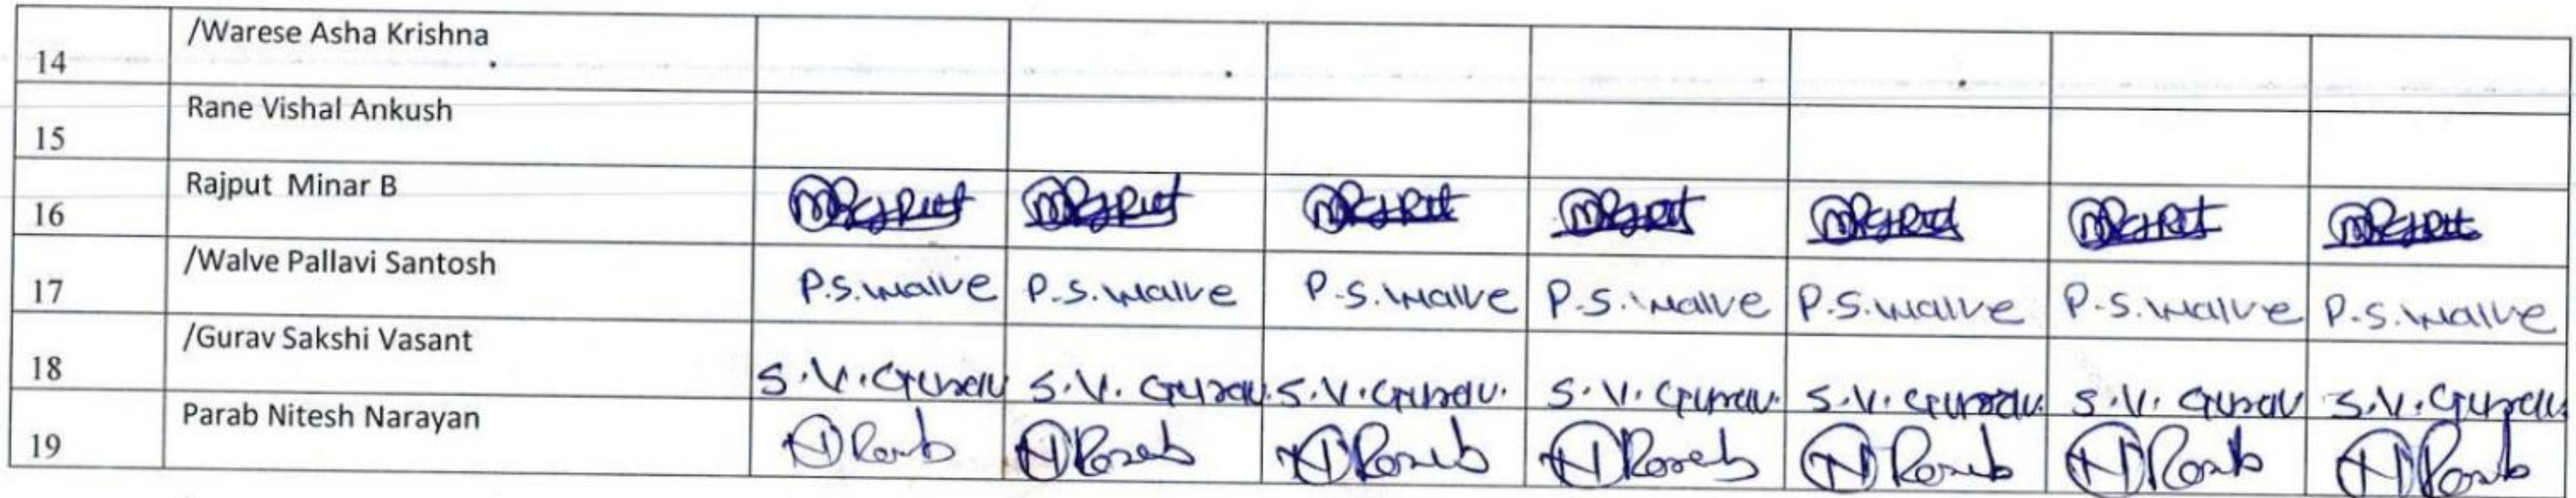 14 /Warese Asha Krishna
15 Rane Vishal Ankush
16 Rajput Minar B MRajput MRajput MRajput MRajput MRajput MRajput MRajput
17 /Walve Pallavi Santosh P.S.Walve P.S.Walve P.S.Walve P.S.Walve P.S.Walve P.S.Walve P.S.Walve
18 /Gurav Sakshi Vasant S.V.Gurav S.V. Gurav S.V.Gurav. S.V.Gurav. S.V.Gurav. S.V. Gurav S.V.Gurav
19 Parab Nitesh Narayan N Parab N Parab N Parab N Parab N Parab N Parab N Parab